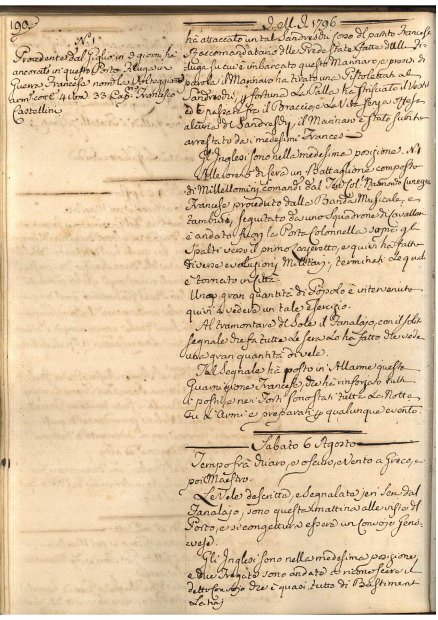 190.
J. M. J. 1796
N.º 1
Procedente dal Giglio in 3 giorni ha
ancorato in questo Porto
Guerra Francesa nom.ta La
33 Cap. Francesco
Castellini
ha attaccato un tal Sandreschi Corso di partito Francese
Raccomandatario delle Prede state fatte dalle
sue imbarcato questo Marinaro, e presi di
parola il Marinaro ha tirato una Pistolettata al
Sandreschi, e fortuna La Palla ha
ed è passata fra il Braccio e La Vita senza offesa
alcuna di Sandreschi, il Marinaro è stato subito
arrestato da i medesimi Francesi
Gl'Inglesi sono nella medesima posizione N.º 1
Alle ore 6 di sera un Battaglione composto
di Mille Uomini comandi dal
Francese preceduto dalla Banda Musicale, e
tamburi, seguitato da uno Squadrone di Cavalleria
è andato fuori la Porta Colonnella sopra gl
Spalti verso il primo Lazeretto, e quivi ha fatto
diverse evoluzioni Militari, terminate Le quali
è tornato in Città.
Una gran quantità di Popolo è intervenuto
quivi a vedere un tale Esercizio.
Al tramontare di Sole il Fanalajo, con il solito
segnale che fà tutte Le sere Lo ha fatto che vede
una gran quantità di vele.
Tal segnale hà posto in Allarme questa
Guarnigione Francese, che ha rinforzato tutti
i posti, e nei Forti sono stati tutta La Notte
su L'Armi e preparati p qualunque evento.
Sabato 6 Agosto
Tempo frà chiaro, e oscuro, e Vento a Greco, e
poi Maestro.
Le Vele descritte, e segnalate jeri sera dal
Fanalajo, sono questa mattina alla vista del
Porto, e si congettura essere un Convojo Geno-
vese.
Gli Inglesi sono nella medesima posizione,
e due Fregate sono andate a riconoscere il
detto Convojo che è quasi tutto di Bastimenti
Latini